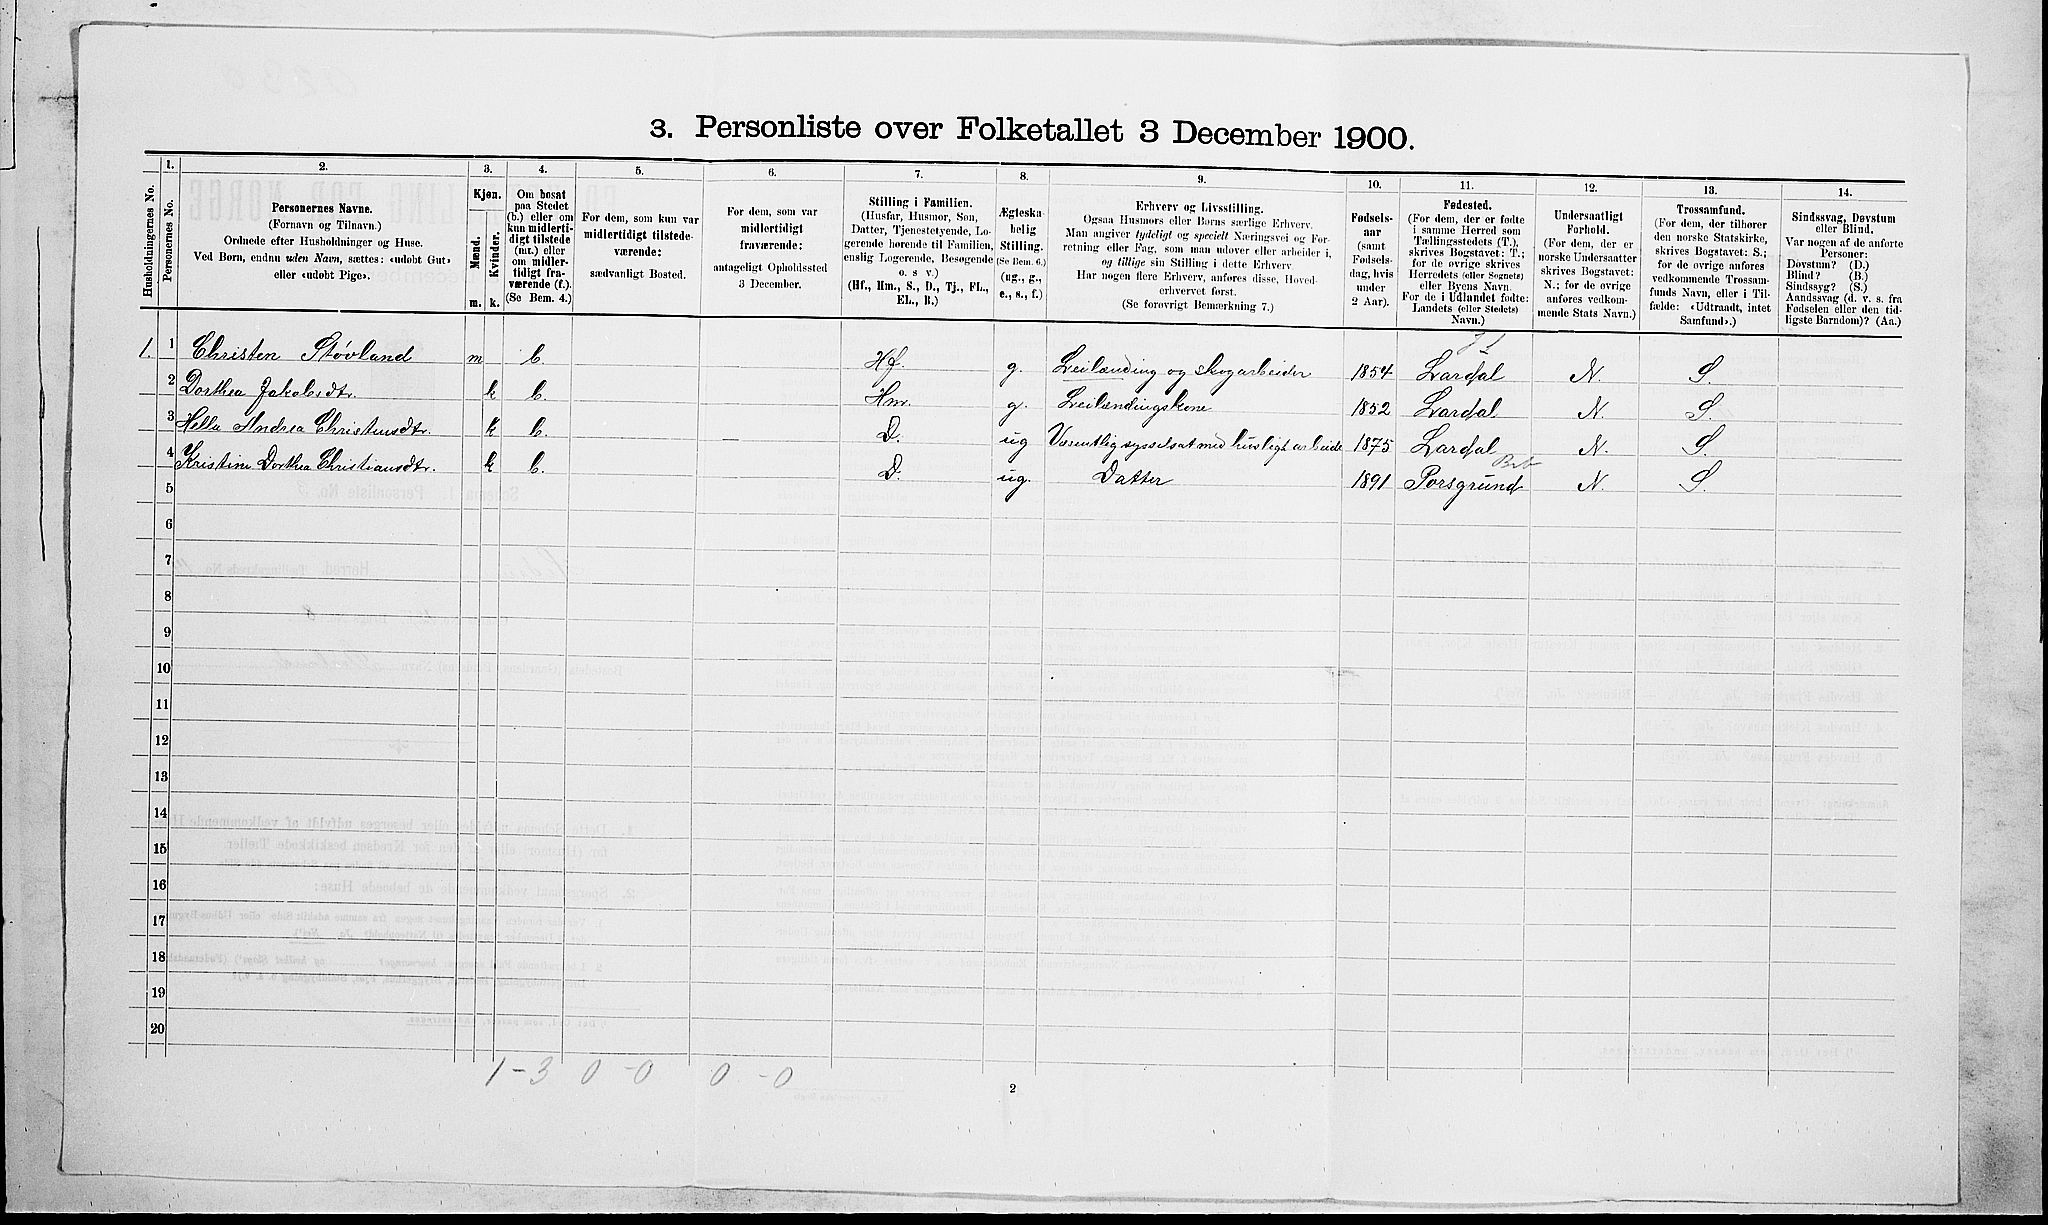 3. Personliste over Folketallet 3 December 1900.
Husholdningernes No.
1.
Personernes No.
2.
Personernes Navne.
(Fornavn og Tilnavn.)
Ordnede efter Husholdninger og Huse.
Ved Børn, endnu uden Navn, sættes: «udøbt Gut»
eller «udøbt Pige».
3.
Kjøn.
Mænd.
Kvinder.
m. k.
4.
Om bosat
paa Stedet
(b.) eller om
kun midlerti-
digt tilstede
(mt.) eller
om midler-
tidigt fra-
værende (f.).
(Se Bem. 4.)
5.
For dem, som kun var
midlertidigt tilstede-
værende:
sædvanligt Bosted.
6.
For dem, som var
midlertidigt
fraværende:
antageligt Opholdssted
3 December.
7.
Stilling i Familien.
(Husfar, Husmor, Søn,
Datter, Tjenestetyende, Lo-
gerende hørende til Familien,
enslig Logerende, Besøgende
o. s v.)
(Hf., Hm., S., D., Tj., FL.,
EL., B.)
8.
Ægteska-
belig
Stilling.
(Se Bem. 6.)
(ug., g.,
e., s., f.)
9.
Erhverv og Livsstilling.
Ogsaa Husmors eller Børns særlige Erhverv.
Man angiver tydeligt og specielt Næringsvei og For-
retning eller Fag, som man udøver eller arbeider i,
og tillige sin Stilling i dette Erhverv.
Har nogen flere Erhverv, anføres disse, Hoved-
erhvervet først.
(Se forøvrigt Bemærkning 7.)
10.
Fødsels-
aar
(samt
Fødsels-
dag, hvis
under
2 Aar).
11.
Fødested.
(For dem, der er fødte
i samme Herred som
Tællingsstedets (T.),
skrives Bogstavet: T.;
for de øvrige skrives
Herredets (eller Sognets)
eller Byens Navn.
For de i Udlandet fødte:
Landets (eller Stedets)
Navn.)
12.
Undersaatligt
Forhold.
(For dem, der er
norske Undersaatter
skrives Bogstavet:
N.; for de øvrige
anføres vedkom-
mende Stats Navn.)
13.
Trossamfund.
(For dem, der tilhører
den norske Statskirke,
skrives Bogstavet: S.;
for de øvrige anføres
vedkommende Trossam-
funds Navn, eller i Til-
fælde: «Udtraadt, intet
Samfund».)
14.
Sindssvag, Døvstum
eller Blind.
Var nogen af de anførte
Personer:
Døvstum? (D.)
Blind? (B.)
Sindssyg? (S.)
Aandssvag (d. v. s. fra
Fødselen eller den tid-
ligste Barndom)? (Aa.)
1. 1 Christen Støvland m b. Hf. g. Leilænding og skogarbeider 1854 Lardal N. S.
2 Dorthea Jakobsdtr. k b. Hm. g. Leilændingskone 1852 Lardal N. S.
3 Hella Andrea Christensdtr. k b. D. ug Væsentlig sysselsat med husligt arbeide 1875 Lardal N. S.
4 Kristine Dorthea Christiansdtr. k b. D. ug. Datter 1891 Porsgrund N. S.
5
6
7
8
9
10
11
12
13
14
15
16
17
18
19
20
1-3 0-0 0-0
2